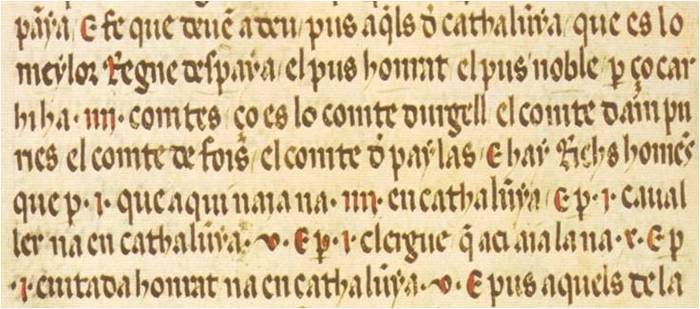 pãya E fe que deuẽ a deu pus aq̃ls đ cathalũya que es lo
meylor Regne despaya el pus honrat el pus noble p ço car
hi ha · iiii · comtes ço es lo comte durgell el comte dãmpu
ries el comte de fois el comte đ paylas E hay Richs homẽs
que p · i · que aqui naia na · iiii · en cathalũya E p · i · cauall
ler na en cathalũya · v · E p · i · clergue q̃ aci aia la na · x · E p
· i · ciutada honrat na en cathalũya · v · E pus aquels de la